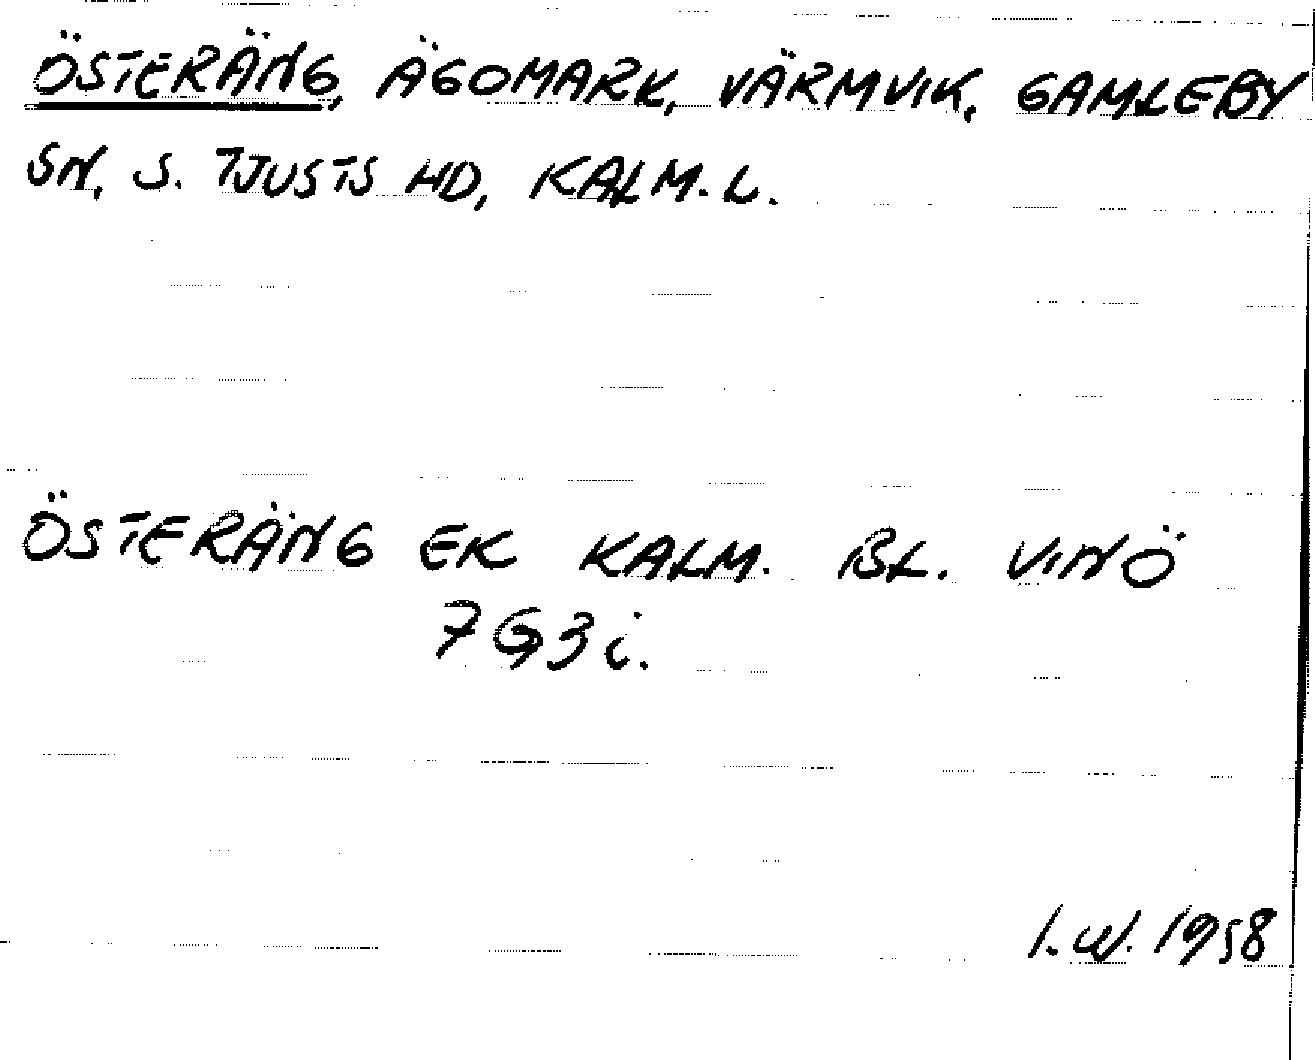 ÖSTERÄNG, ÄGOMARK, VÄRMVIK, GAMLEBY
SN, S. TJUSTS HD, KALM. L.
ÖSTERÄNG EK KALM. BL. VINÖ
7G3i.
I.W. 1958